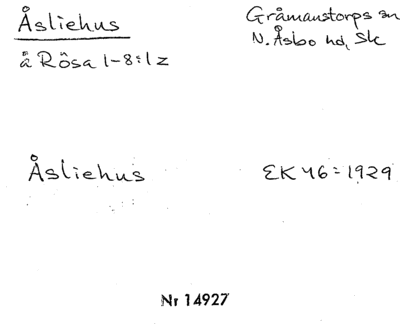 Åsliehus
Gråmanstorps sn
N. Åsbo hd, Sk
å Rösa 1-8:1 z
Åsliehus
EK 46 = 1929
Nr 14927